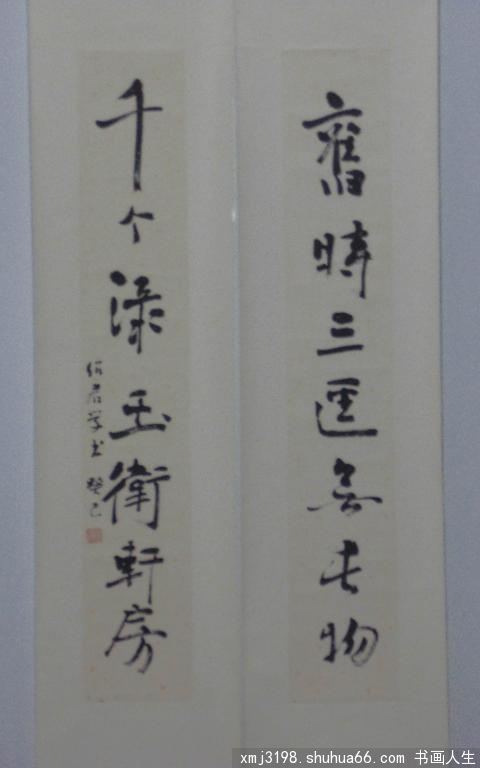 舊時三逕無長物
千个渌玉衛軒房
君学书 癸巳
xmj3198.shuhua66.com 书画人生